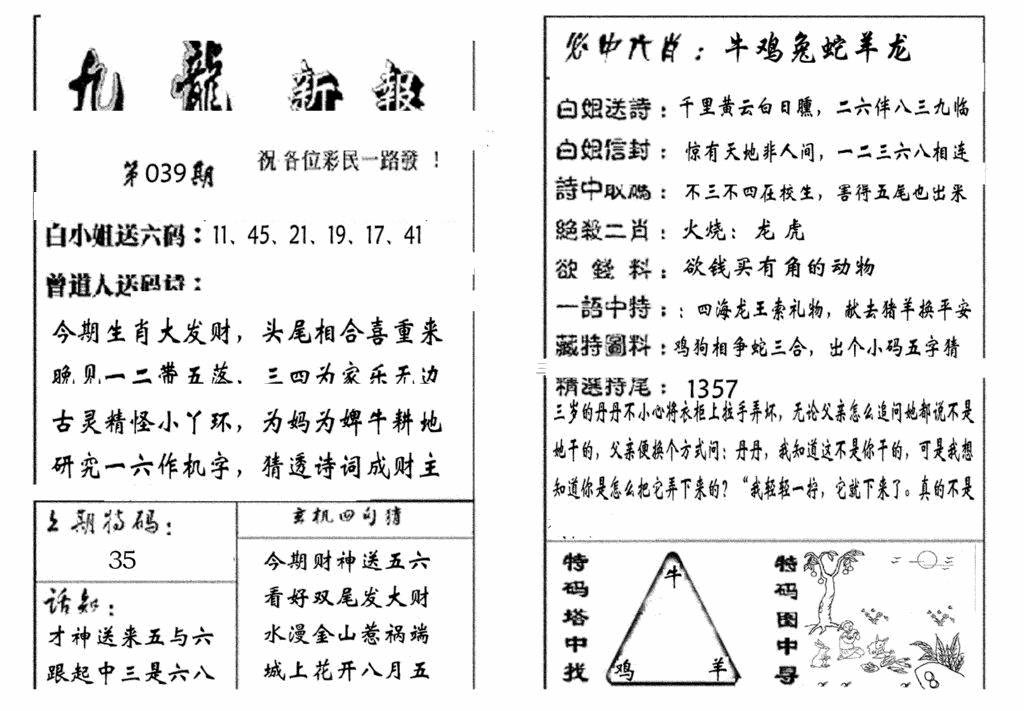 九龍新報
第039期
祝各位彩民一路發！
白小姐送六码：11、45、21、19、17、41
曾道人送码诗：
今期生肖大发财，头尾相合喜重来
晚见一二带五落，三四为家乐无边
古灵精怪小丫环，为妈为婢牛耕地
研究一六作机字，猜透诗词成财主
上期特码：
35
话知：
才神送来五与六
跟起中三是六八
玄机四句猜
今期财神送五六
看好双尾发大财
水漫金山惹祸端
城上花开八月五
必中六肖：牛鸡兔蛇羊龙
白姐送詩：千里黄云白日曛，二六伴八三九临
白姐信封：惊有天地非人间，一二三六八相连
詩中取碼：不三不四在校生，害得五尾也出米
絕殺二肖：火烧：龙虎
欲錢料：欲钱买有角的动物
一語中特：：四海龙王索礼物，献去猪羊换平安
藏特圖料：鸡狗相争蛇三合，出个小码五字猜
精選特尾：1357
三岁的丹丹不小心将衣柜上拉手弄坏，无论父亲怎么追问她都说不是
她干的，父亲便换个方式问：丹丹，我知道这不是你干的，可是我想
知道你是怎么把它弄下来的？“我轻轻一拧，它就下来了。真的不是
特码塔中找
牛
鸡
羊
特码图中寻
8